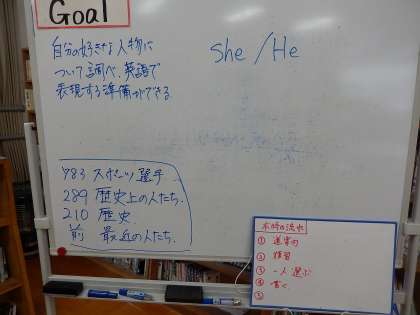 Goal
自分の好きな人物に
ついて調べ、英語で
表現する準備ができる
she / He
783 スポーツ選手
289 歴史上の人たち.
210 歴史
前 最近の人たち.
本時の流れ
① 道案内
② 復習
③ 一人選ぶ
④ 書く
⑤